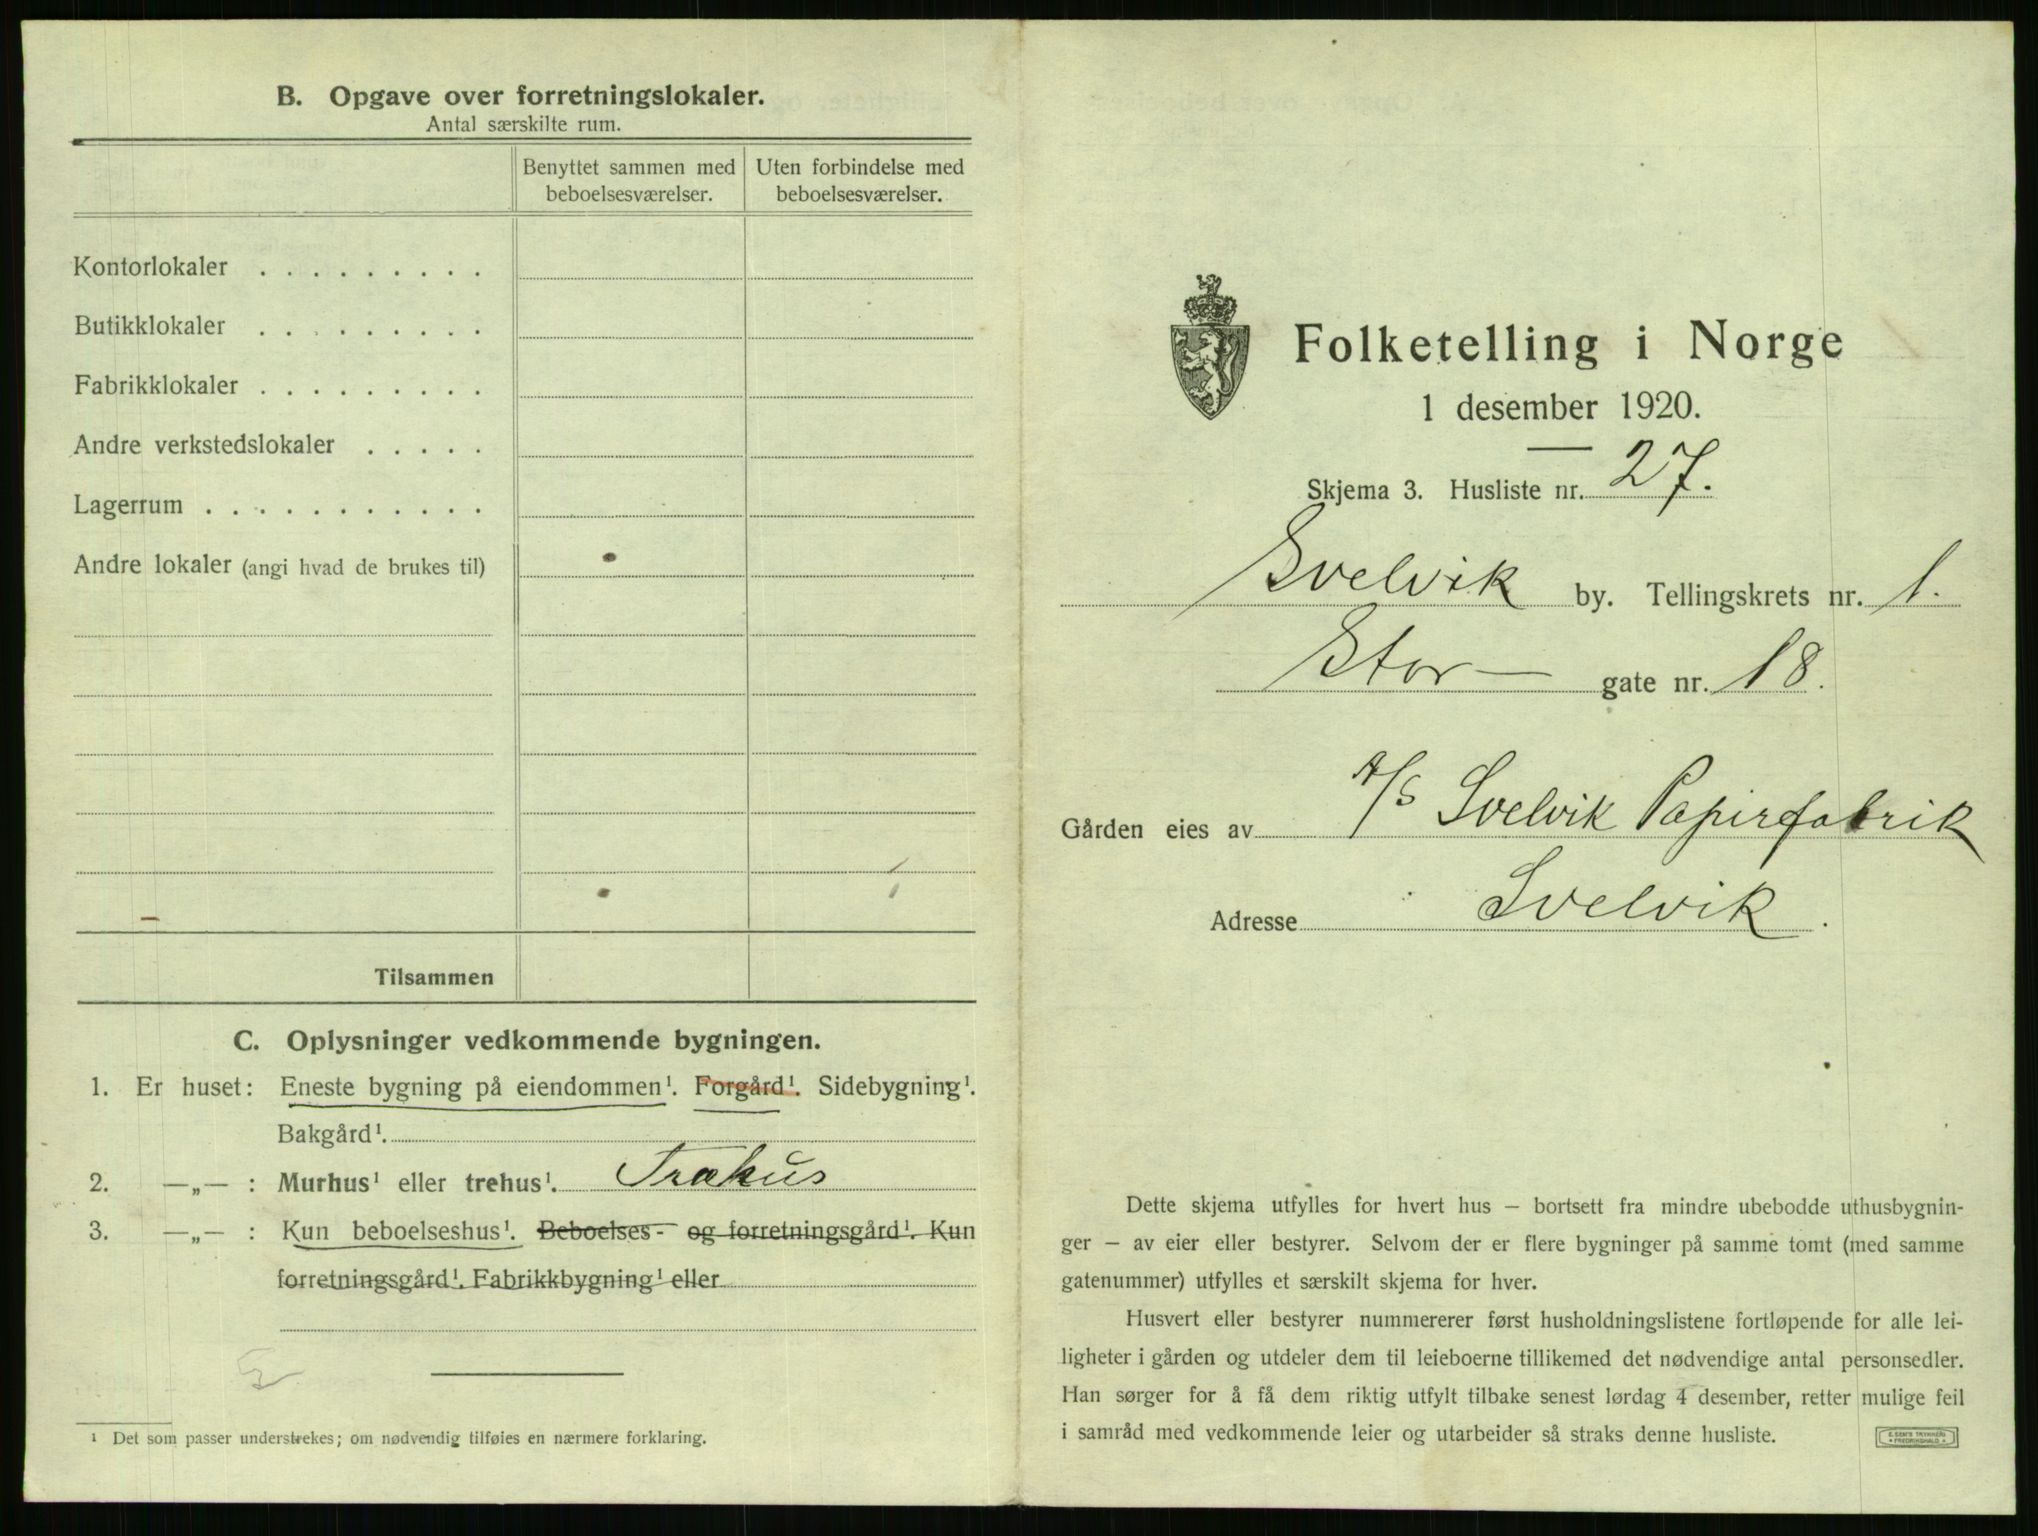 B. Opgave over forretningslokaler.
Antal særskilte rum.
Benyttet sammen med beboelsesværelser.
Uten forbindelse med beboelsesværelser.
Kontorlokaler . . . . . . . . .
Butikklokaler . . . . . . . . .
Fabrikklokaler . . . . . . . . .
Andre verkstedslokaler . . . . .
Lagerrum . . . . . . . . . . .
Andre lokaler (angi hvad de brukes til)
Tilsammen
C. Oplysninger vedkommende bygningen.
1. Er huset: Eneste bygning på eiendommen¹. Forgård¹. Sidebygning¹.
Bakgård¹.
2. —„— : Murhus¹ eller trehus¹. Træhus
3. —„— : Kun beboelseshus¹. Beboelses- og forretningsgård¹. Kun
forretningsgård¹. Fabrikkbygning¹ eller
¹ Det som passer understrekes; om nødvendig tilføies en nærmere forklaring.
Folketelling i Norge
1 desember 1920.
Skjema 3. Husliste nr. 27.
Svelvik by. Tellingskrets nr. 1.
Stor— gate nr. 18.
Gården eies av A/S Svelvik Papirfabrik
Adresse Svelvik.
Dette skjema utfylles for hvert hus – bortsett fra mindre ubebodde uthusbygnin-
ger – av eier eller bestyrer. Selvom der er flere bygninger på samme tomt (med samme
gatenummer) utfylles et særskilt skjema for hver.
Husvert eller bestyrer nummererer først husholdningslistene fortløpende for alle lei-
ligheter i gården og utdeler dem til leieboerne tillikemed det nødvendige antal personsedler.
Han sørger for å få dem riktig utfylt tilbake senest lørdag 4 desember, retter mulige feil
i samråd med vedkommende leier og utarbeider så straks denne husliste.